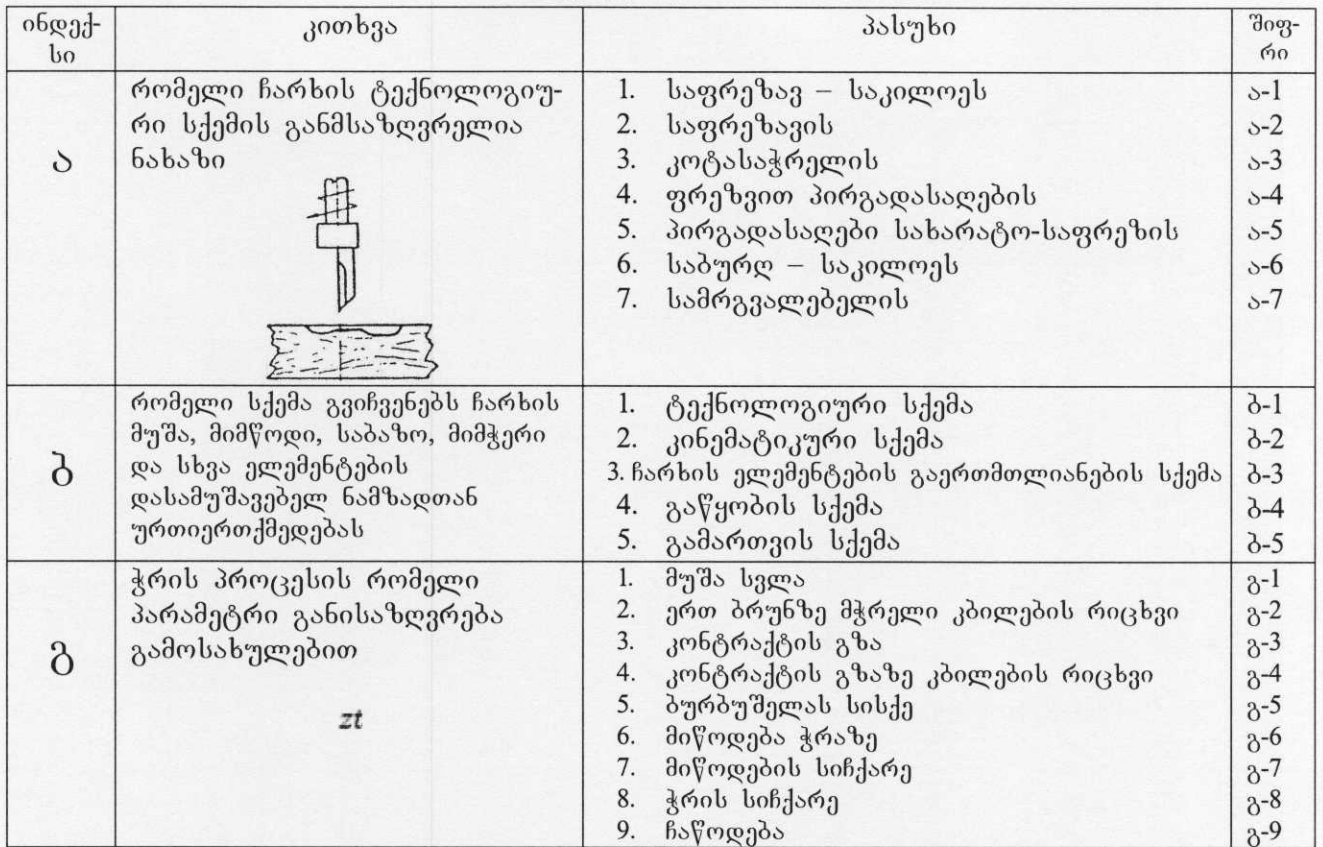 ინდექ-
სი
კითხვა
პასუხი
შიფ-
რი
ა
რომელი ჩარხის ტექნოლოგიუ-
რი სქემის განმსაზღვრელია
ნახაზი
1. საფრეზავ – საკილოეს ა-1
2. საფრეზავის ა-2
3. კოტასაჭრელის ა-3
4. ფრეზვით პირგადასაღების ა-4
5. პირგადასაღები სახარატო-საფრეზის ა-5
6. საბურღ – საკილოეს ა-6
7. სამრგვალებელის ა-7
ბ
რომელი სქემა გვიჩვენებს ჩარხის
მუშა, მიმწოდი, საბაზო, მიმჭერი
და სხვა ელემენტების
დასამუშავებელ ნამზადთან
ურთიერთქმედებას
1. ტექნოლოგიური სქემა ბ-1
2. კინემატიკური სქემა ბ-2
3. ჩარხის ელემენტების გაერთმთლიანების სქემა ბ-3
4. გაწყობის სქემა ბ-4
5. გამართვის სქემა ბ-5
გ
ჭრის პროცესის რომელი
პარამეტრი განისაზღვრება
გამოსახულებით
zt
1. მუშა სვლა გ-1
2. ერთ ბრუნზე მჭრელი კბილების რიცხვი გ-2
3. კონტრაქტის გზა გ-3
4. კონტრაქტის გზაზე კბილების რიცხვი გ-4
5. ბურბუშელას სისქე გ-5
6. მიწოდება ჭრაზე გ-6
7. მიწოდების სიჩქარე გ-7
8. ჭრის სიჩქარე გ-8
9. ჩაწოდება გ-9